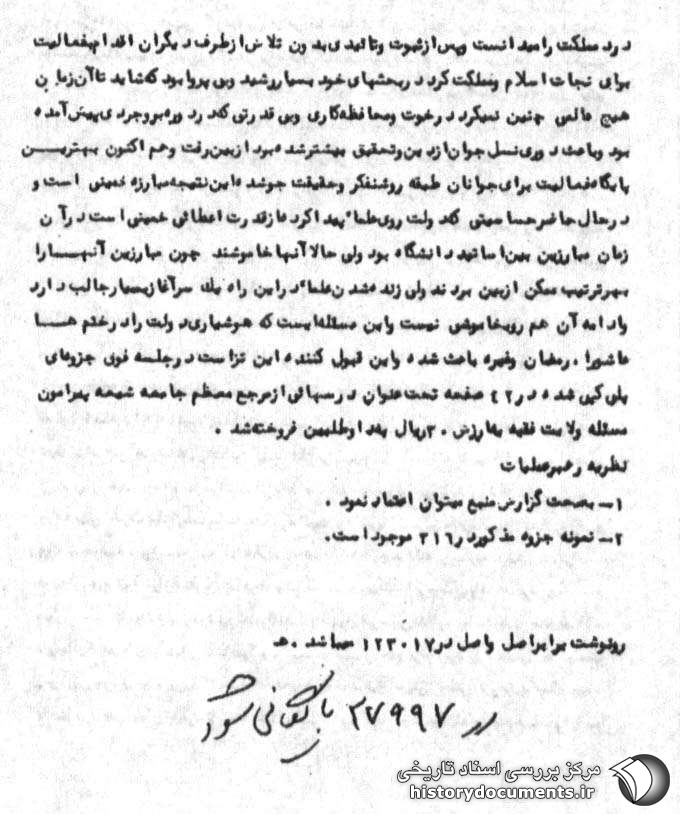 درد مملکت را میدانست و پس از ثبوت و تائیدی بدون تلاش از طرف دیگران اقدام بفعالیت
برای نجات اسلام و مملکت کرد در بحثهای خود بسیار رشید و بی پروا بود که شاید تا آن زمان
هیچ عالمی چنین نمیکرد رخوت و محافظه کاری و بی قدرتی که در دوره بروجردی پیش آمده
بود و باعث دوری نسل جوان از دین و تحقیق بیشتر شده بود از بین رفت و هم اکنون بهتریــن
پایگاه فعالیت برای جوانان طبقه روشنفکر و حقیقت جو شده این نتیجه مبارزه خمینی است و
در حال حاضر حساسیتی که دولت روی علماء پیدا کرده از قدرت اعطائی خمینی است در آن
زمان مبارزین بین اساتید دانشگاه بود ولی حالا آنها خاموشند چون مبارزین آنهــا را
بهر ترتیب ممکن از بین بردند ولی زنده شدن علماء در این راه یك سرآغاز بسیار جالب دارد
و ادامه آن هم رو بخاموشی نیست و این مسئله ایست که هوشیاری دولت را در ختم هــا
عاشورا ، رمضان وغیره باعث شده و این قبول کننده این تز است در جلسه فوق جزوه ای
پلی کپی شده در ۴۲ صفحه تحت عنوان درسهائی از مرجع معظم جامعه شیعه پیرامون
مسئله ولایت فقیه به ارزش ۳۰ ریال بداوطلبین فروخته شد .
نظریه رهبر عملیات
۱ــ بصحت گزارش منبع میتوان اعتماد نمود .
۲ــ نمونه جزوه مذکور در ۳۱۶ موجود است.
رونوشت برابر اصل واصل در ۱۲۳۰۱۷ میباشد . هـ
در ۲۷۹۹۷ بایگانی شود
مرکز بررسی اسناد تاریخی
historydocuments.ir